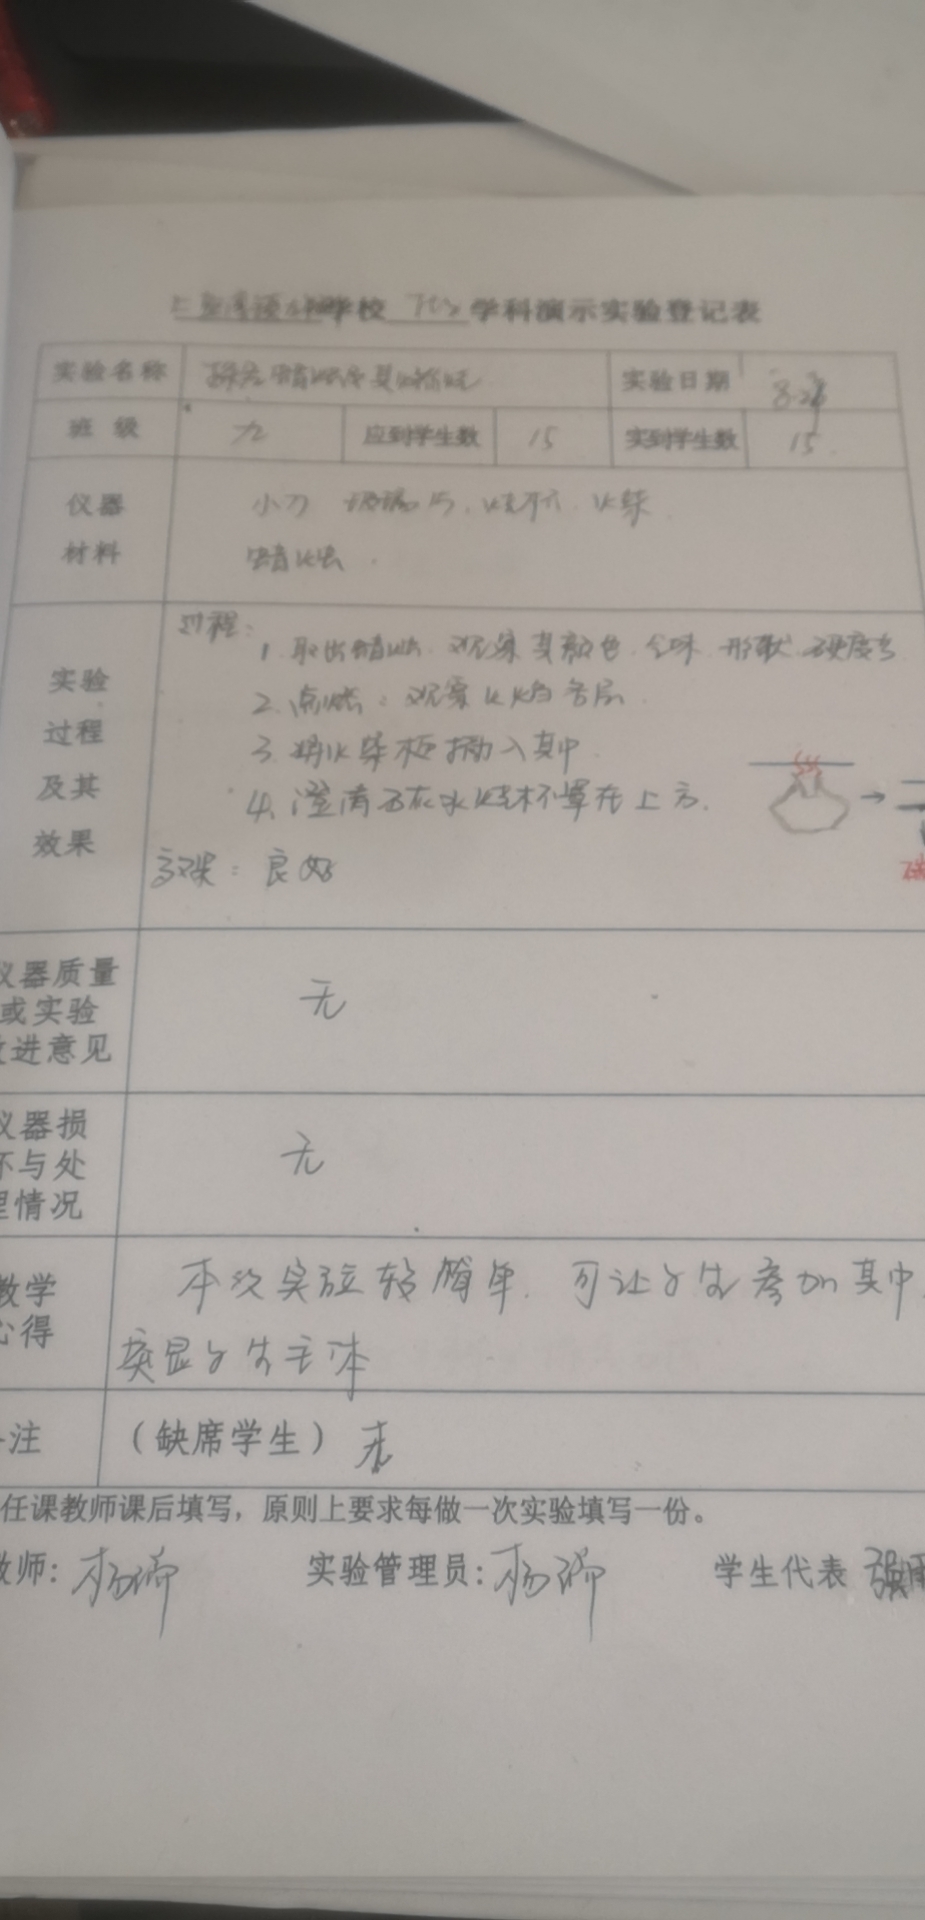 学校 学科演示实验登记表
实验名称 蜡烛及其燃烧 实验日期
班 级 九 应到学生数 15 实到学生数 15
仪器 小刀 玻璃片、烧杯、火柴
材料 蜡烛
过程:
1. 取出蜡烛、观察其颜色、气味、形状、硬度等
实验 2. 点燃:观察火焰各层
过程 3. 将火柴梗插入其中
及其 4. 澄清石灰水烧杯罩在上方.
效果 效果:良好
仪器质量
或实验 无
改进意见
仪器损
坏与处 无
理情况
教学 本次实验较简单. 可让学生参加其中,
心得 突显学生主体
注 (缺席学生) 无
任课教师课后填写,原则上要求每做一次实验填写一份。
教师: 实验管理员: 学生代表